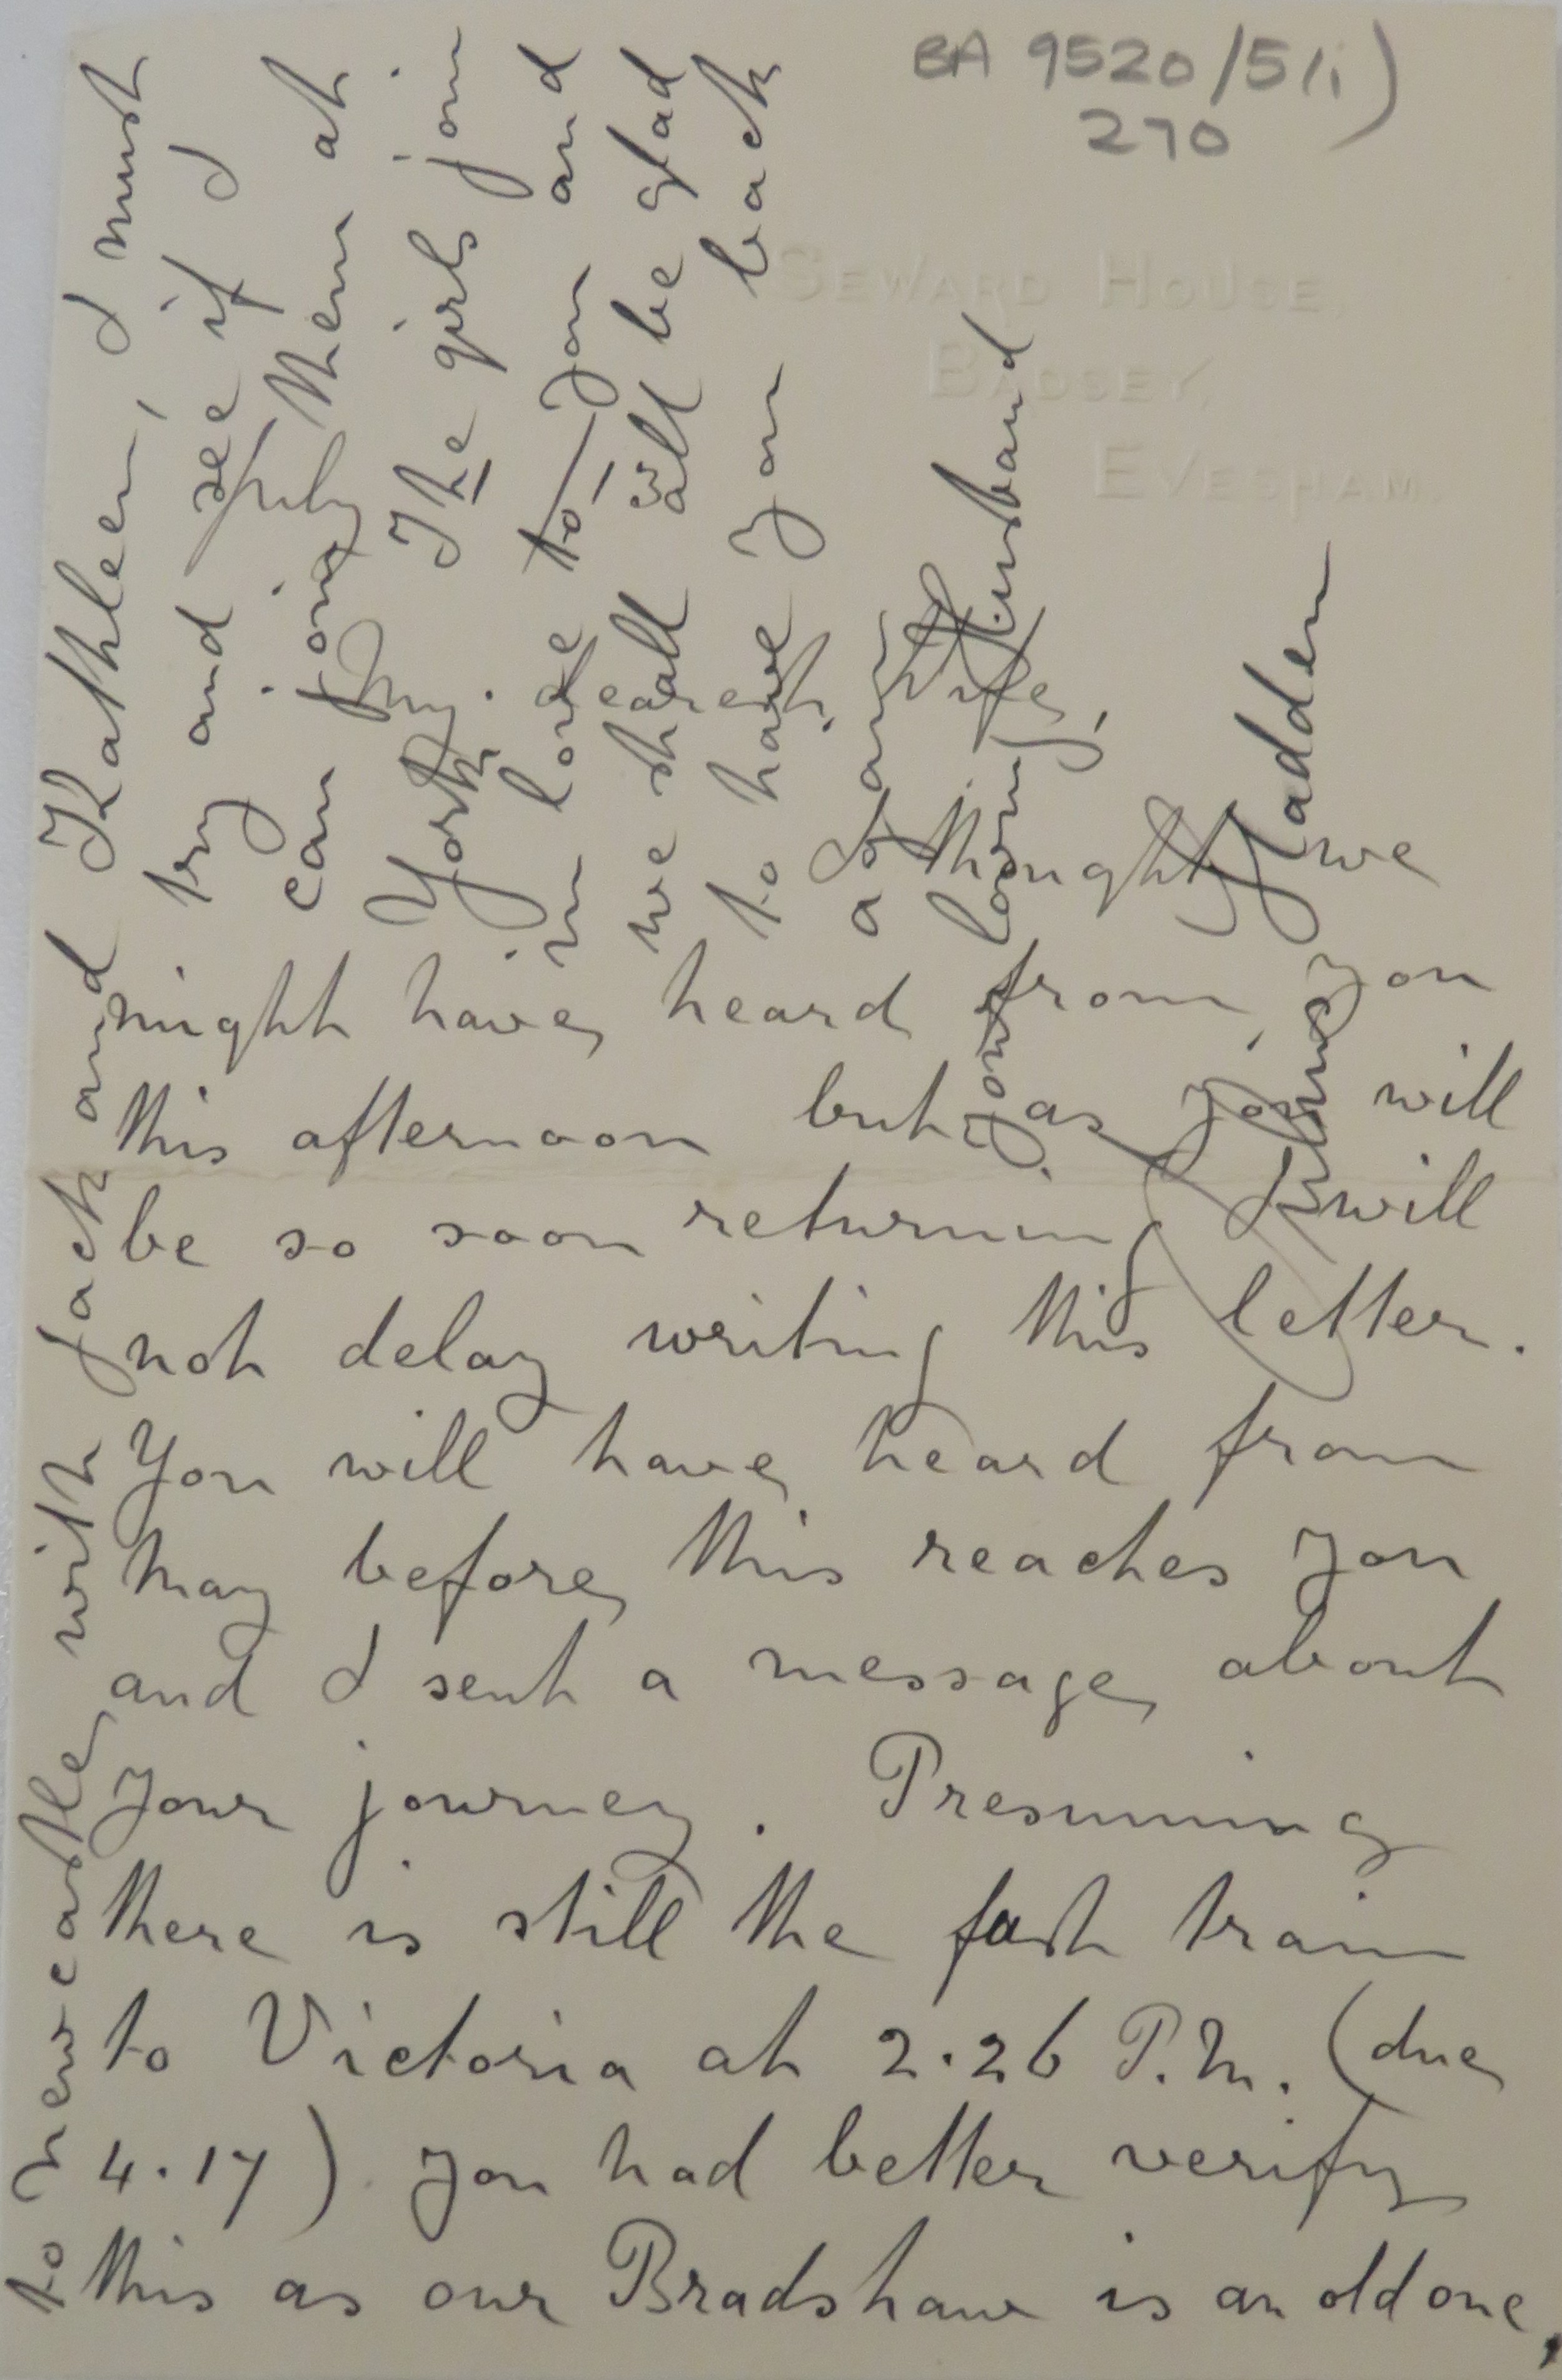 BA 9520/5/i)
270
SEWARD HOUSE,
BADSEY,
EVESHAM
July
My dearest Wife,
I thought we
might have heard from you
this afternoon but as you will
be so soon returning I will
not delay writing this letter.
You will have heard from
May before this reaches you
and I sent a message about
your journey. Presuming
there is still the fast train
to Victoria at 2.26 P.M. (due
4.17) you had better verify
this as our Bradshaw is an old one,
to Newcastle with Jack and Kathleen, I must
try and see if I
can join them at
York. The girls join
in love to you and
we shall all be glad
to have you back
am
your loving Husband
Julius Sladden